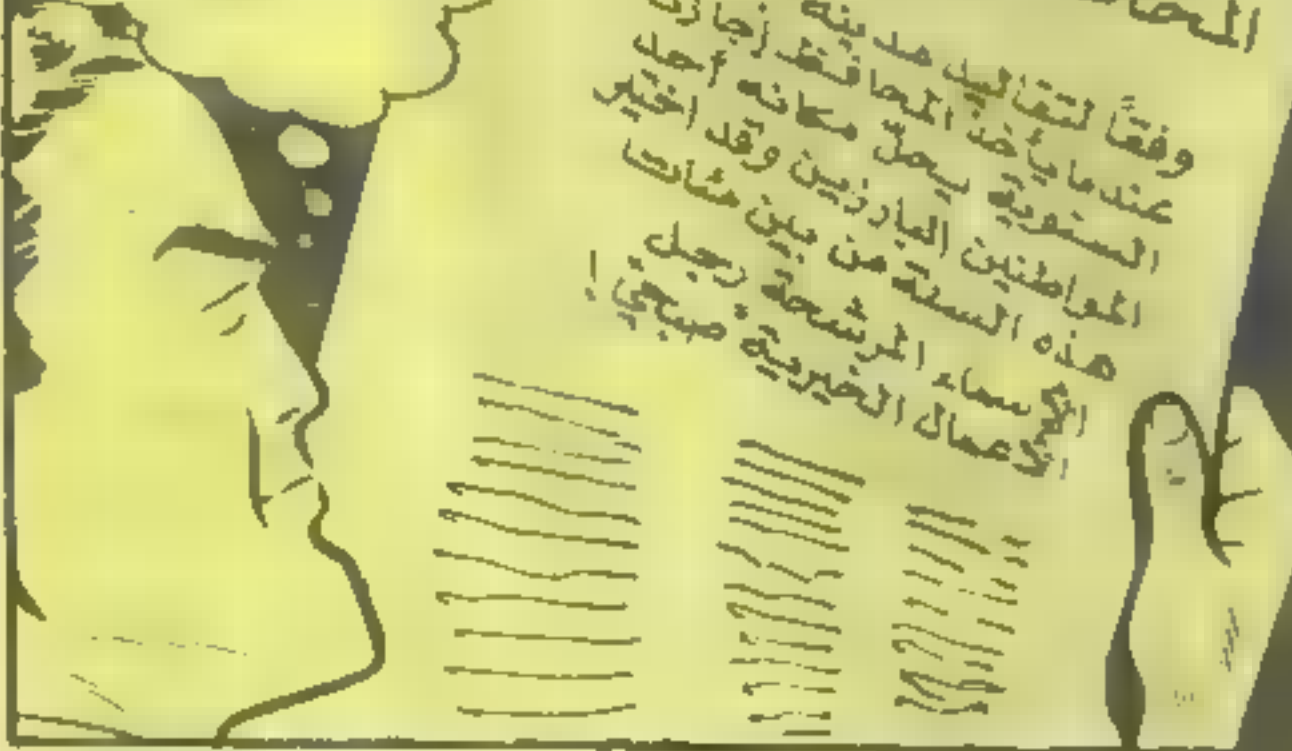 المحا
وفقًا لتقاليد مدينة
عندما يأخذ المحافظ إجازته
السنوية يحلّ مكانه أحد
المواطنين البارزين وقد اختير
هذه السنة من بين مئات
الأسماء المرشحة رجل
الأعمال الخيرية صبحي !